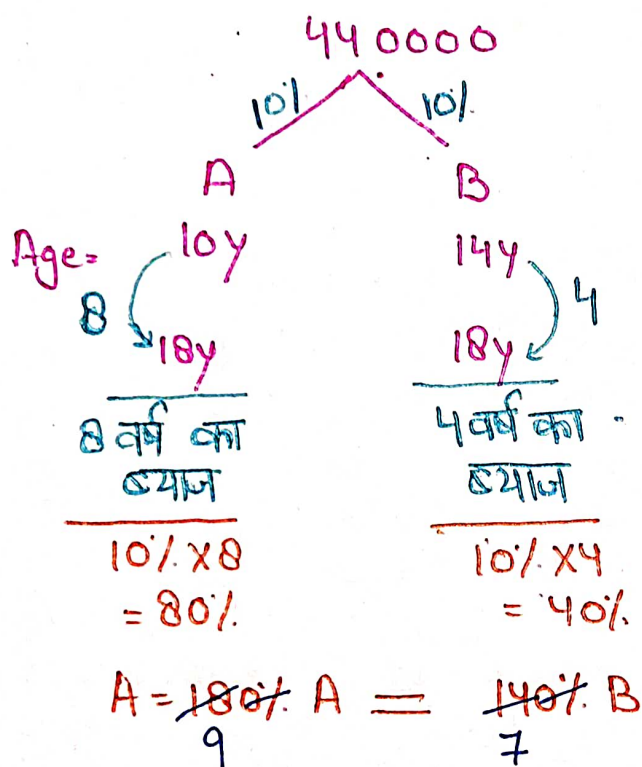 440000
10% 10%
A B
Age= 10y 14y
8 4
18y 18y
8 वर्ष का 4 वर्ष का
ब्याज ब्याज
10% X8 10% X4
= 80% = 40%
A = 180% A = 140% B
9 7